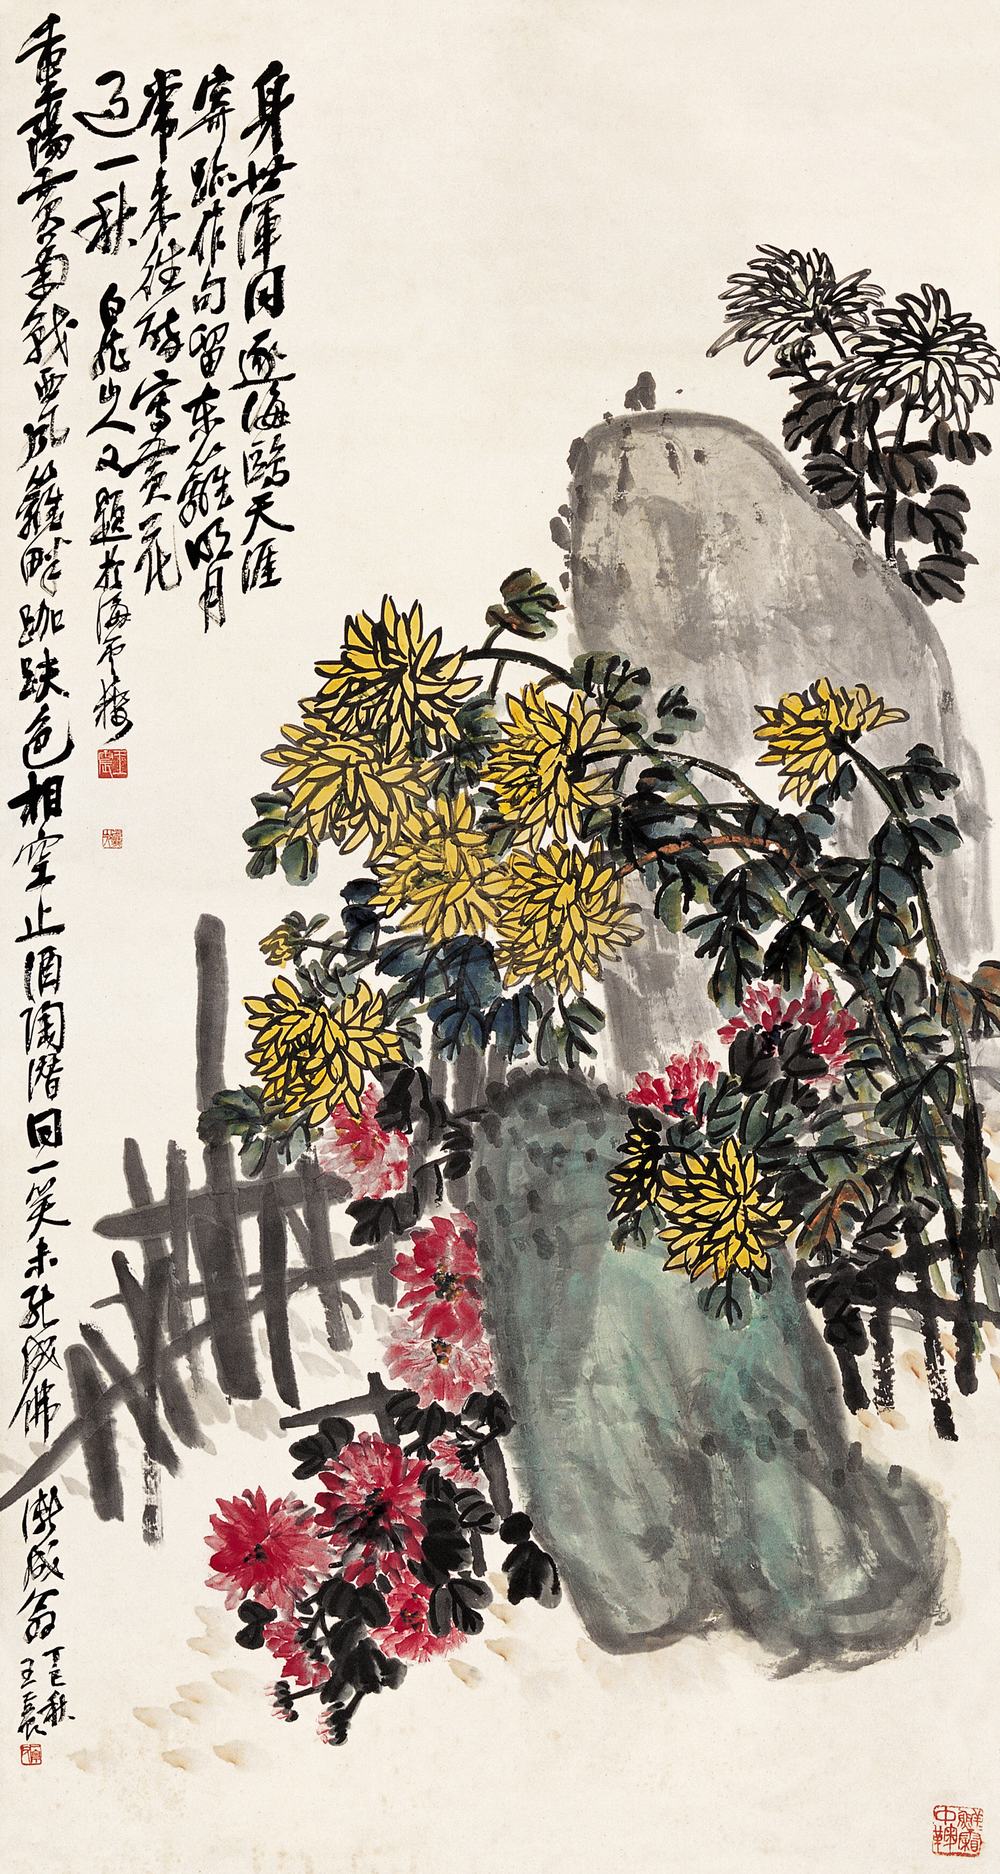 身世渾同逐海鷗天涯
寄跡作句留東籬明月
常來往醉寫黃花
過一秋 白龍山人又題於海雲樓
重陽黃菊戰西風籬畔跏趺色相空止酒陶潛同一笑未能成佛漸成翁
丁巳秋
王震